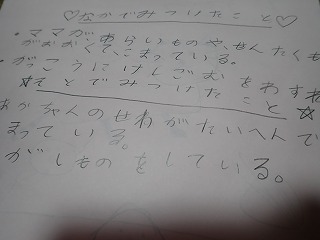 ♡なかでみつけたこと♡
・ママが、あらいものや、せんたくも
がおおくて、こまっている。
・がっこうにけしごむをわすれ
☆そとでみつけたこと☆
あかちゃんのせわがたいへんで
まっている。
がしものをしている。